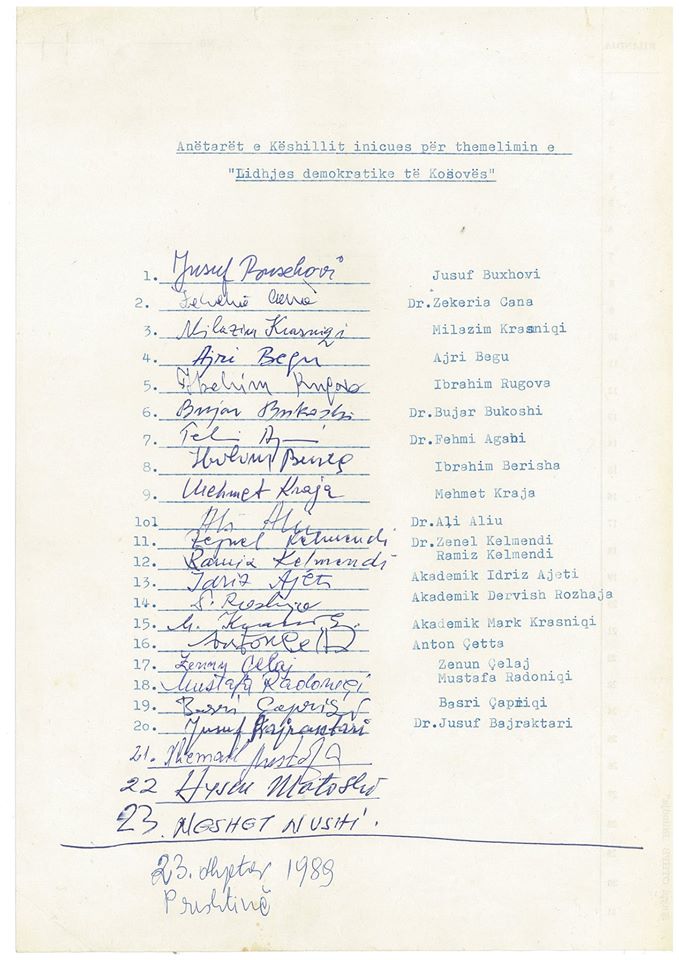 Anëtarët e Këshillit inicues për themelimin e
"Lidhjes demokratike të Kosovës"
1. Jusuf Buxhovi Jusuf Buxhovi
2. Zekeria Cana Dr.Zekeria Cana
3. Milazim Krasniqi Milazim Krasniqi
4. Ajri Begu Ajri Begu
5. Ibrahim Rugova Ibrahim Rugova
6. Bujar Bukoshi Dr.Bujar Bukoshi
7. Dr.Fehmi Agani
8. Ibrahim Berisha
9. Mehmet Kraja Mehmet Kraja
10. Ali Aliu Dr.Ali Aliu
11. Zejnel Kelmendi Dr.Zenel Kelmendi
12. Ramiz Kelmendi Ramiz Kelmendi
13. Idriz Ajeti Akademik Idriz Ajeti
14. D. Rozhaja Akademik Dervish Rozhaja
15. M. Akademik Mark Krasniqi
16. Anton Çetta Anton Çetta
17. Zenun Çelaj Zenun Çelaj
18. Mustafa Radoniqi Mustafa Radoniqi
19. Basri Çapriqi Basri Çapriqi
20. Jusuf Bajraktari Dr.Jusuf Bajraktari
21. Xhemail Mustafa
22 Hysen Matoshi
23. NESHET NUSHI.
23. dhjetor 1989
Prishtinë